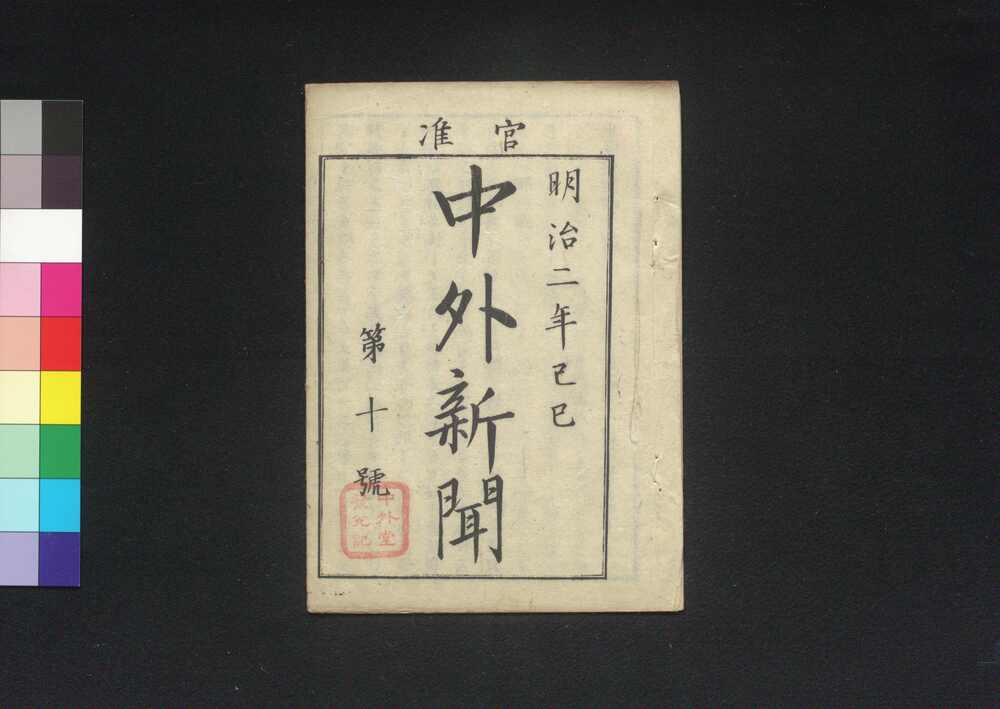 官准
明治二年己巳
中外新聞
第十號
中外堂